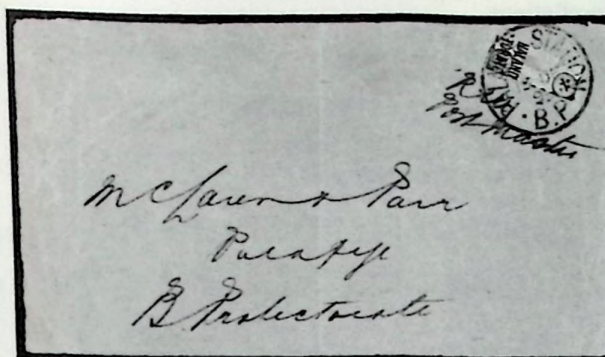 STATION
B.P.
Post Master
McLaren & Parr
Palapye
B Protectorate